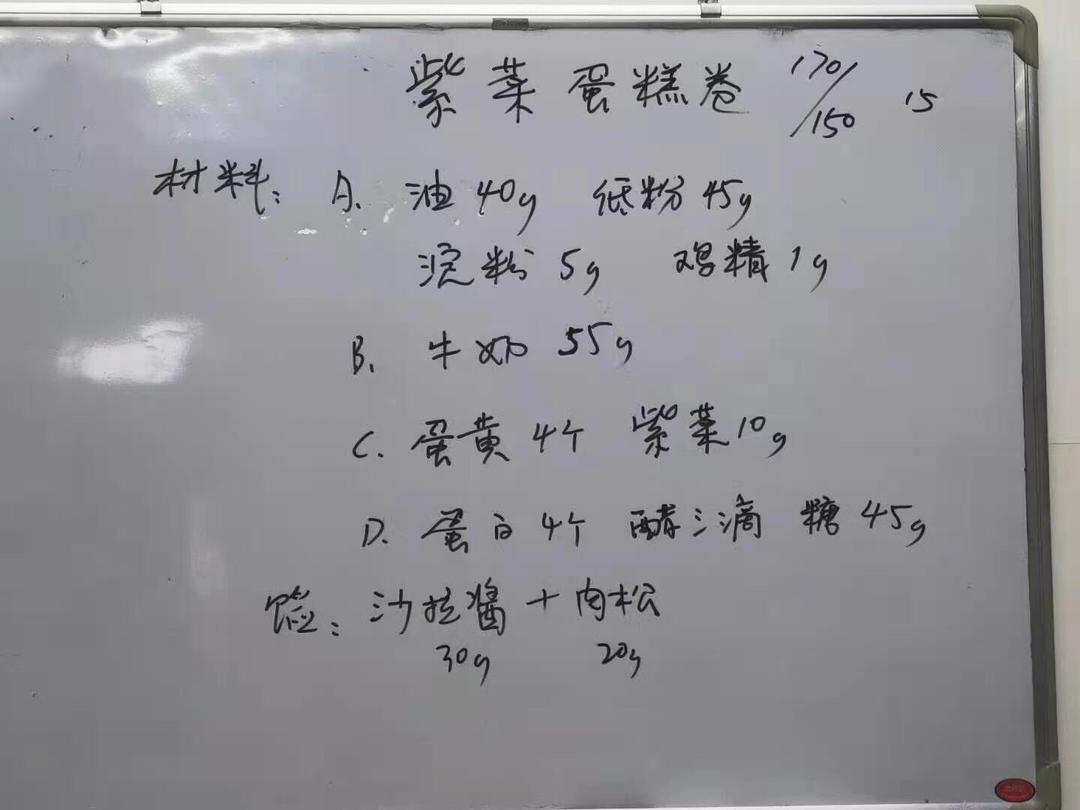 紫菜蛋糕卷 170/150 15
材料: A. 油40g 低粉45g
淀粉5g 鸡精1g
B. 牛奶 55g
C. 蛋黄4个 紫菜10g
D. 蛋白4个 醋三滴 糖45g
馅: 沙拉醬+肉松
30g 20g